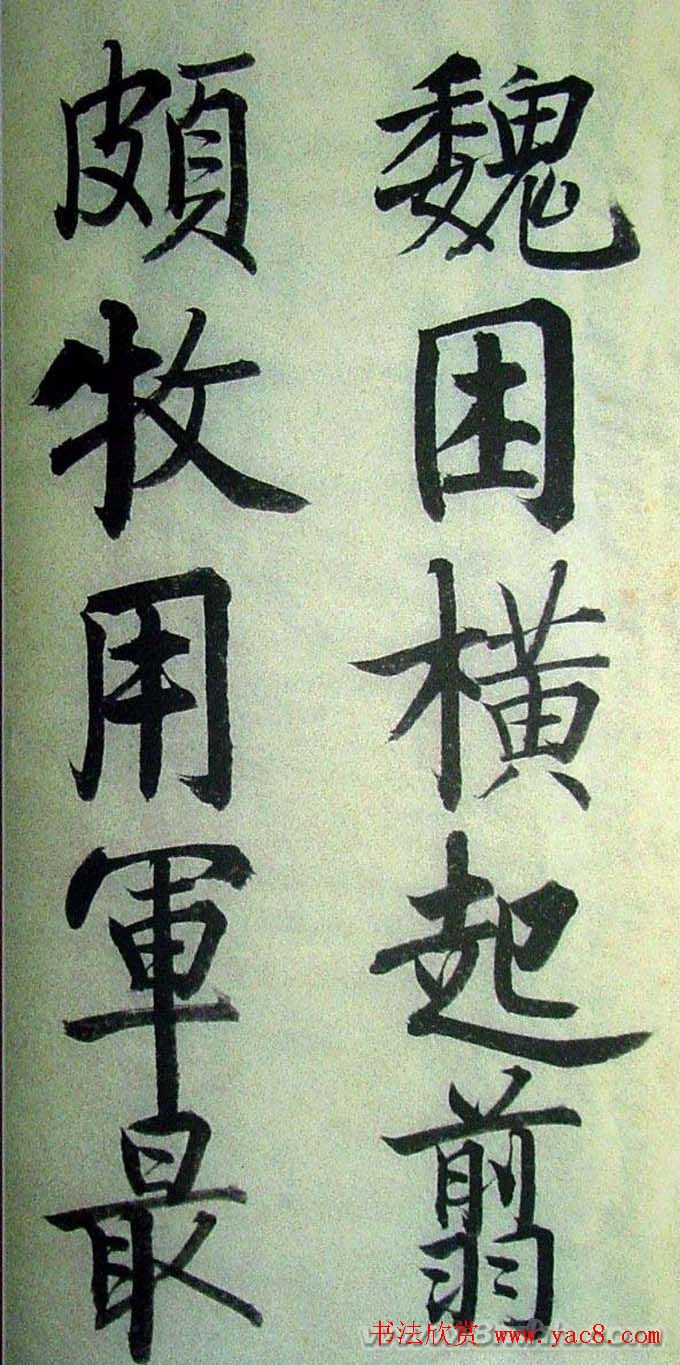 魏困橫起翦
頗牧用軍最
书法欣赏 www.yac8.com